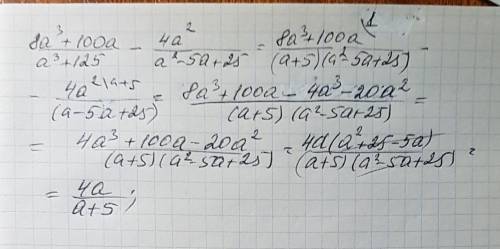 (8a³+100a)/(a³+125) - 4a²/(a²-5a+25) = (8a³+100a\1)/((a+5)(a²-5a+25)) -
- (4a²\a+5)/((a-5a+25)) = (8a³+100a-4a³-20a²)/((a+5)(a²-5a+25)) =
= (4a³+100a-20a²)/((a+5)(a²-5a+25)) = (4a(a²+25-5a))/((a+5)(a²-5a+25)) =
= 4a/(a+5);